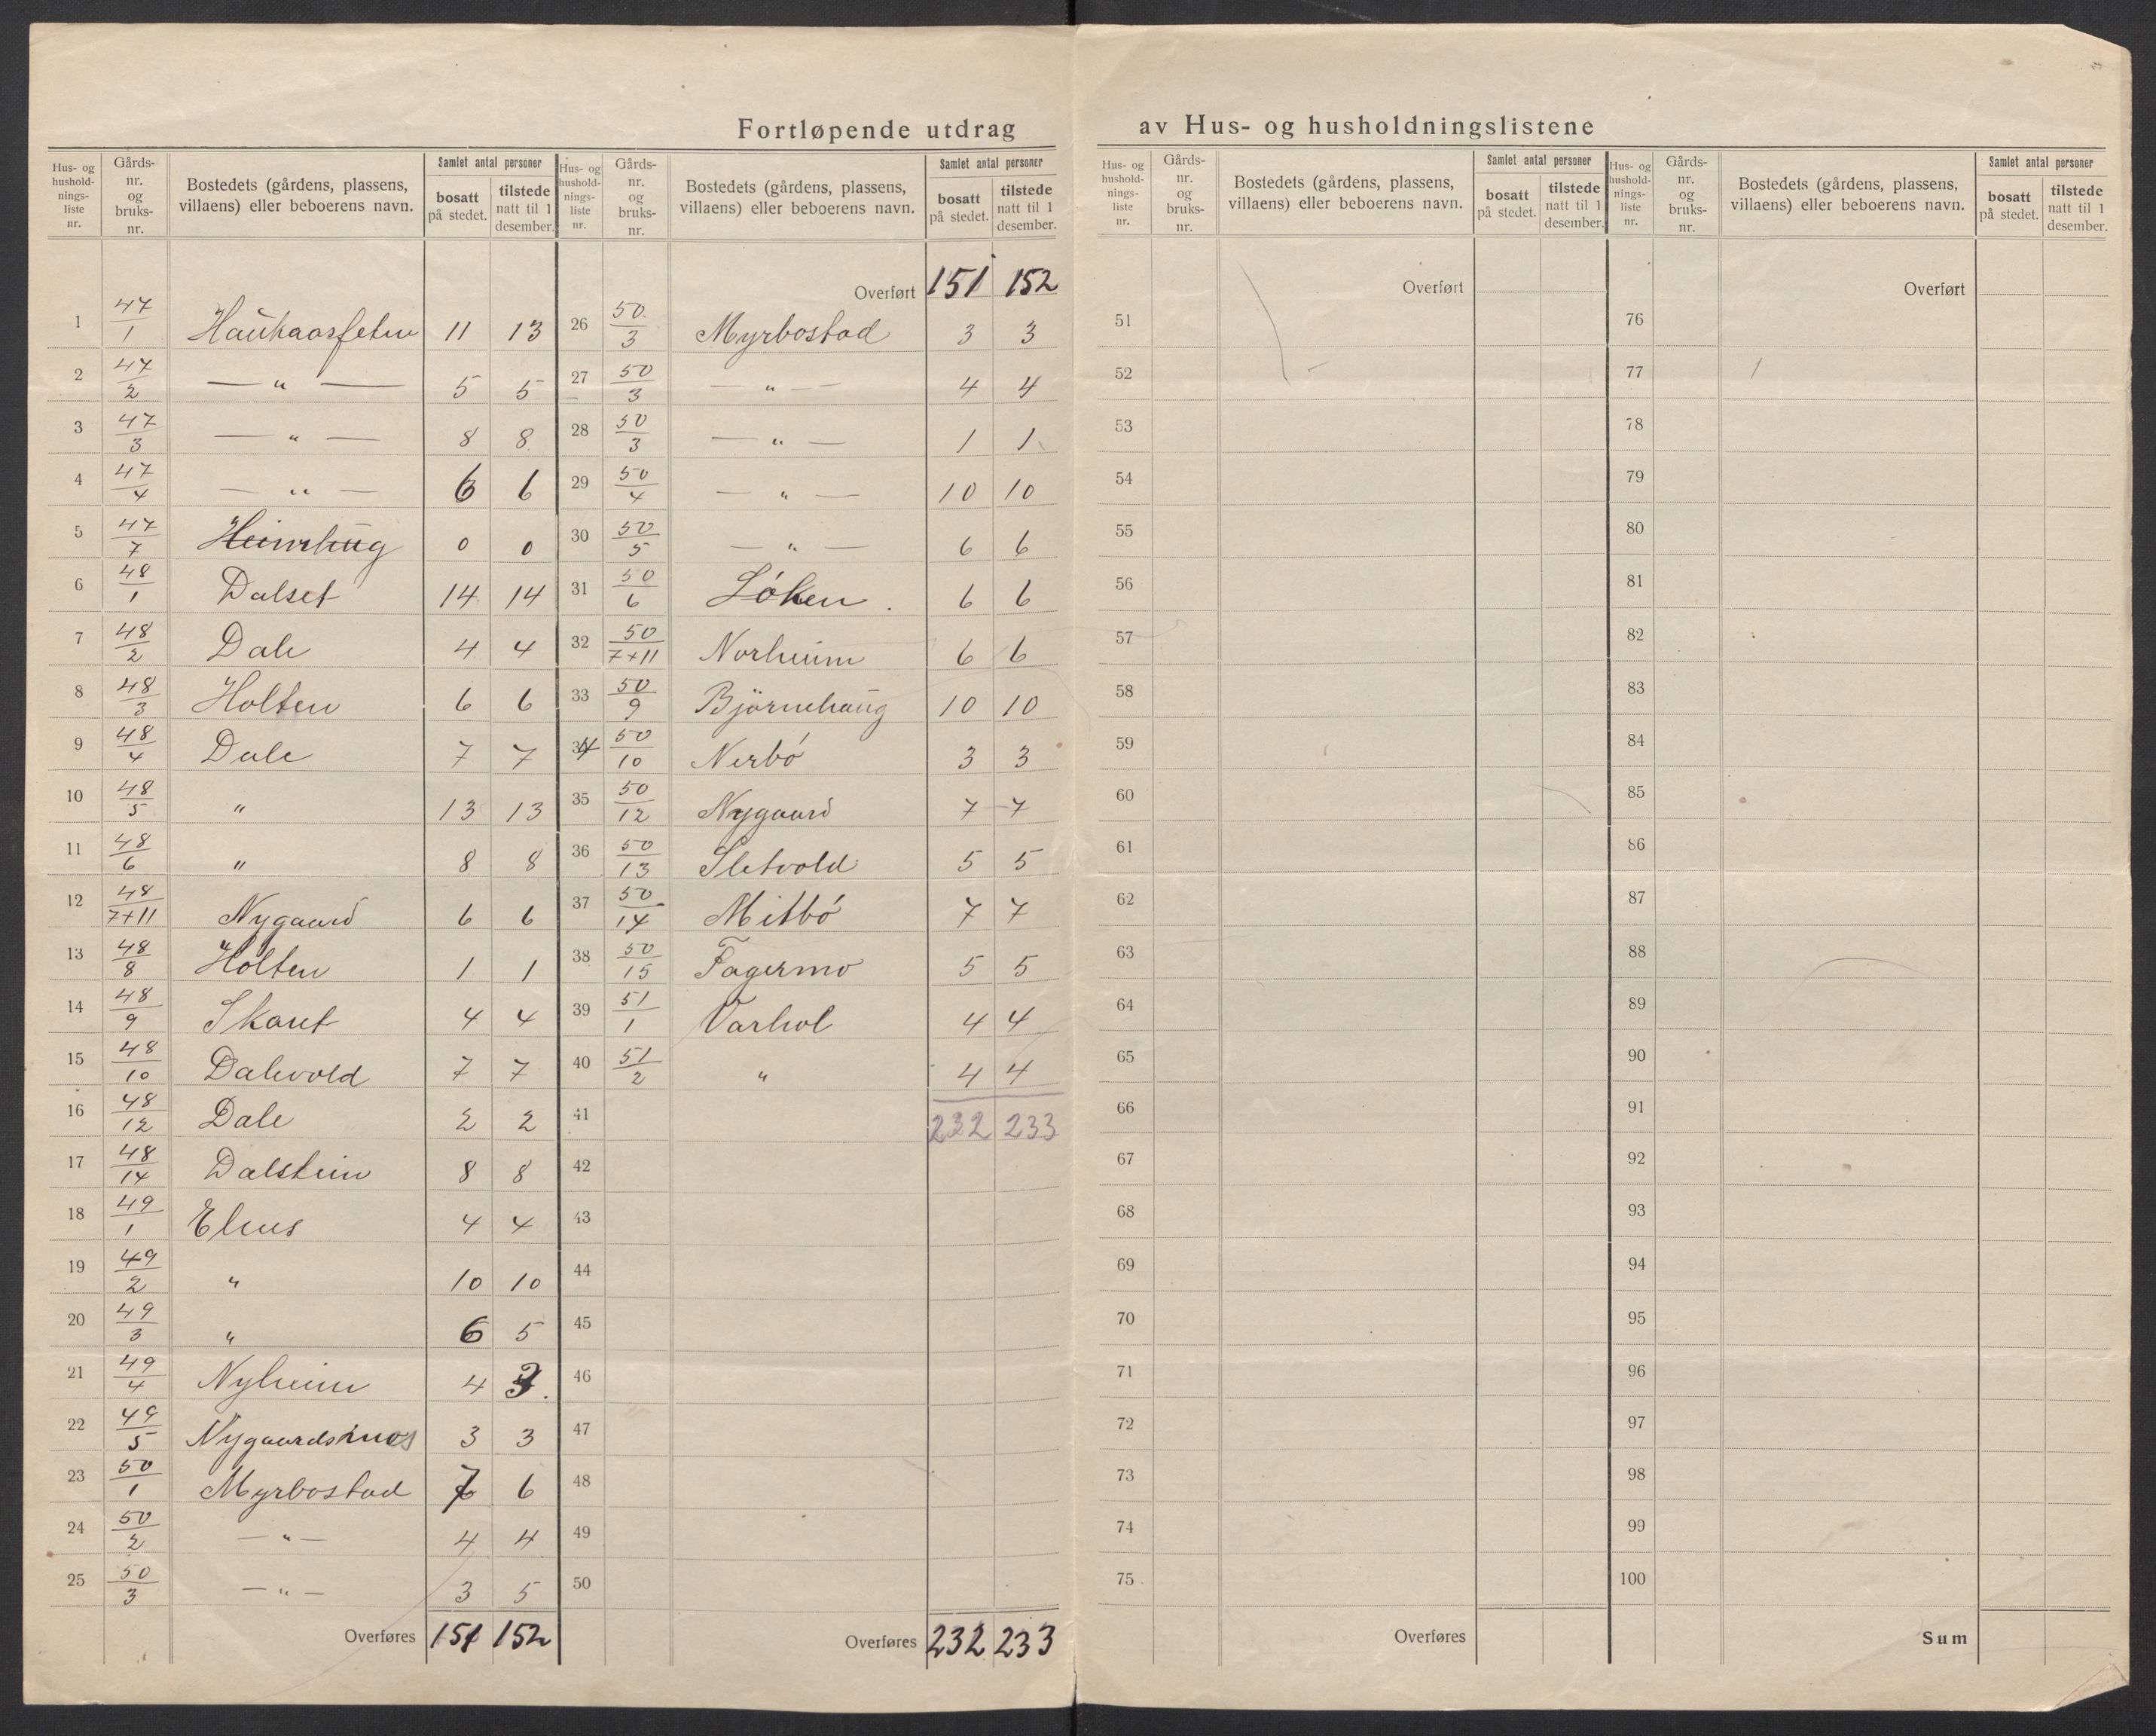 Fortløpende utdrag av Hus- og husholdningslistene
Hus- og husholdnings-liste nr. | Gårds-nr. og bruks-nr. | Bostedets (gårdens, plassens, villaens) eller beboerens navn. | Samlet antal personer | bosatt på stedet. | tilstede natt til 1 desember.
1 47/1 Haukaasfeten 11 13
2 47/2 — " — 5 5
3 47/3 — " — 8 8
4 47/4 — " — 6 6
5 47/7 Heimhug 0 0
6 48/1 Dalset 14 14
7 48/2 Dale 4 4
8 48/3 Holten 6 6
9 48/4 Dale 7 7
10 48/5 " 13 13
11 48/6 " 8 8
12 48/7+11 Nygaard 6 6
13 48/8 Holten 1 1
14 48/9 Skaret 4 4
15 48/10 Dalevold 7 7
16 48/12 Dale 2 2
17 48/14 Dalstein 8 8
18 49/1 Elnes 4 4
19 49/2 " 10 10
20 49/3 " 6 5
21 49/4 Nyheim 4 3.
22 49/5 Nygaardsmos 3 3
23 50/1 Myrbostad 7 6
24 50/2 — " — 4 4
25 50/3 — " — 3 5
Overføres 151 152
Hus- og husholdnings-liste nr. | Gårds-nr. og bruks-nr. | Bostedets (gårdens, plassens, villaens) eller beboerens navn. | Samlet antal personer | bosatt på stedet. | tilstede natt til 1 desember.
Overført 151 152
26 50/3 Myrbostad 3 3
27 50/3 — " — 4 4
28 50/3 — " — 1 1
29 50/4 — " — 10 10
30 50/5 — " — 6 6
31 50/6 Løken . 6 6
32 50/7+11 Norheim 6 6
33 50/9 Björnehaug 10 10
34 50/10 Nerbó 3 3
35 50/12 Nygaard 7 7
36 50/13 Sletvold 5 5
37 50/14 Mitbó 7 7
38 50/15 Fagermo 5 5
39 51/1 Varhol 4 4
40 51/2 " 4 4
41 232 233
42
43
44
45
46
47
48
49
50
Overføres 232 233
Hus- og husholdnings-liste nr. | Gårds-nr. og bruks-nr. | Bostedets (gårdens, plassens, villaens) eller beboerens navn. | Samlet antal personer | bosatt på stedet. | tilstede natt til 1 desember.
Overført
51
52
53
54
55
56
57
58
59
60
61
62
63
64
65
66
67
68
69
70
71
72
73
74
75
Overføres
Hus- og husholdnings-liste nr. | Gårds-nr. og bruks-nr. | Bostedets (gårdens, plassens, villaens) eller beboerens navn. | Samlet antal personer | bosatt på stedet. | tilstede natt til 1 desember.
Overført
76
77
78
79
80
81
82
83
84
85
86
87
88
89
90
91
92
93
94
95
96
97
98
99
100
Sum